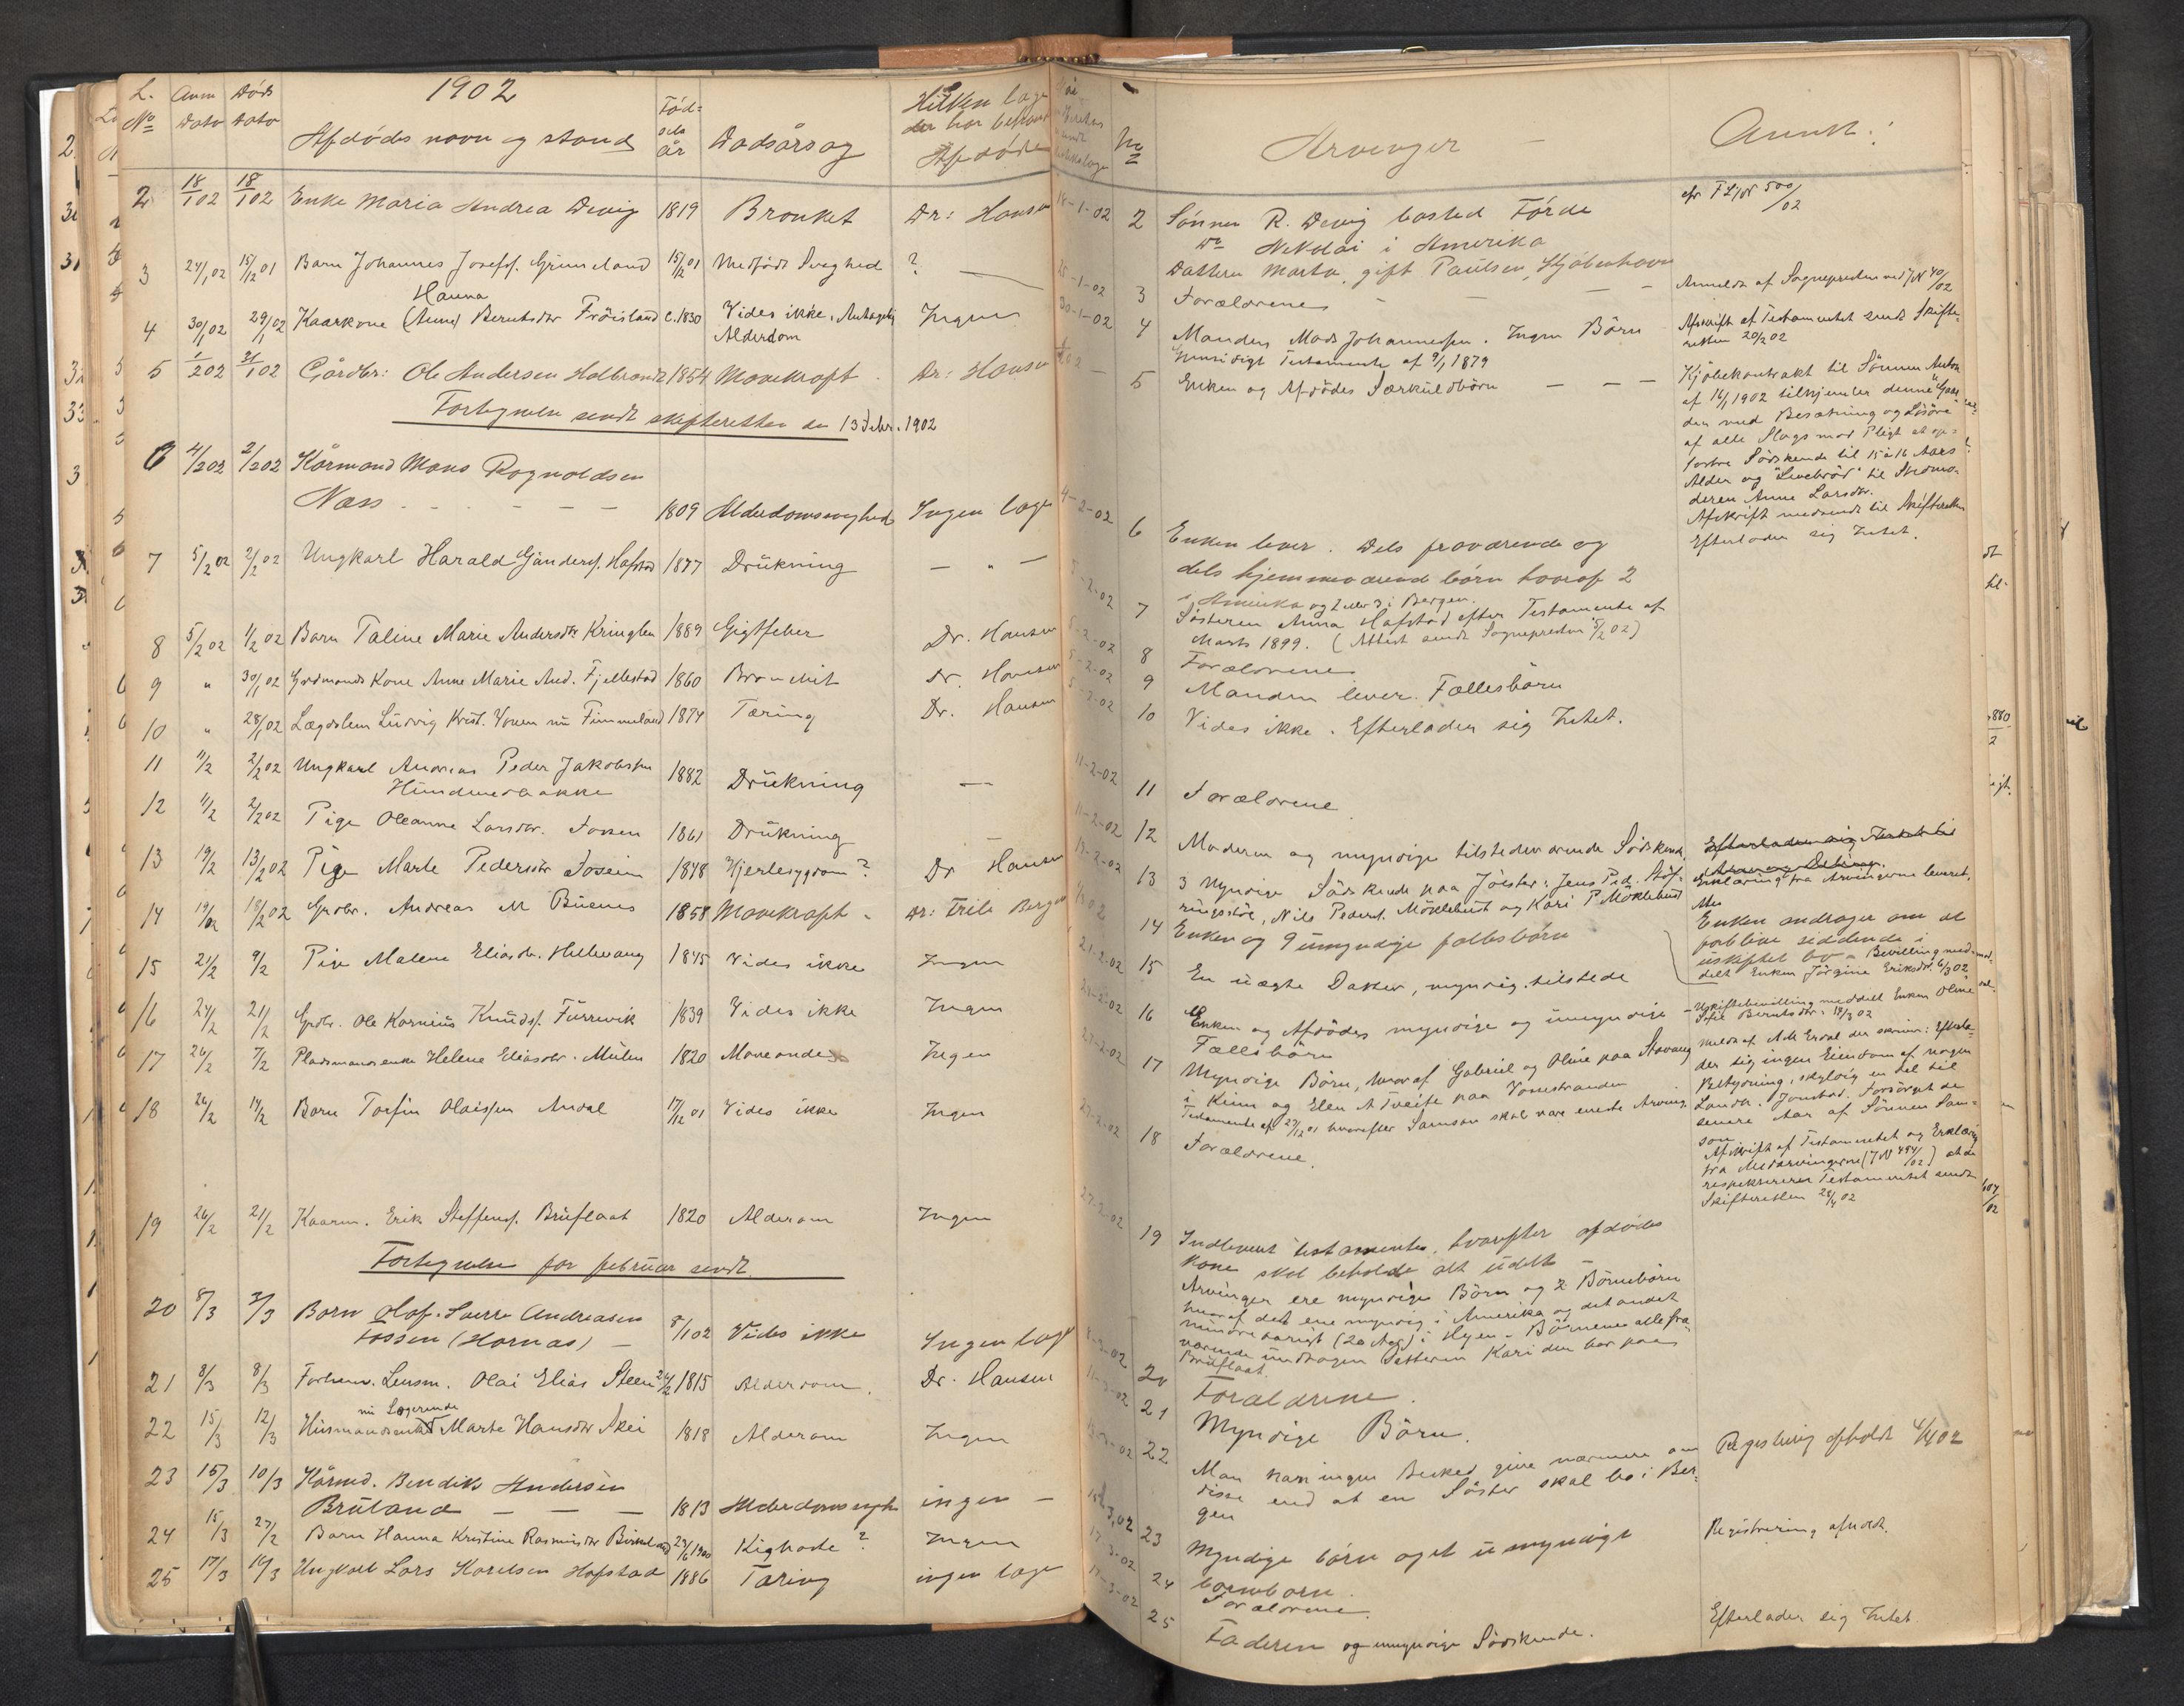 1902
L. No
Anm Dato
Døds Dato
Afdødes navn og stand
Fød-
sels
år
Dødsårsag
Hilken læge
der har behand
Afdøde
2 18/1 02 18/1 02 Enke Maria Andrea Devig 1819 Bronket Dr: Hansen
3 24/1 02 15/12 01 Barn Johannes Josefs. Grimeland 15/12 01 Medfødt Svaghed ?
Hanna
4 30/1 02 29/1 02 Kaarkone (Anne) Berntsdtr Fröisland c. 1830 Vides ikke, Antagelig Ingen
Alderdom
5 1/2 02 31/1 02 Gårdbr: Ole Andersen Holbrand 1854 Mavekræft Dr: Hansen
Fortegnelse sendt skifteretten den 13 Febr. 1902
6 4/2 02 2/2 02 Kårmand Mons Rognaldsen
Næss 1809 Alderdomsvaghed Ingen læge
7 5/2 02 2/2 02 Ungkarl Harald Gjanders. Hafstad 1877 Drukning — " —
8 5/2 02 1/2 02 Barn Taline Marie Andersdtr Kringlen 1889 Gigtfeber Dr. Hansen
9 " 30/1 02 Grdmands Kone Anne Marie And. Fjellestad 1860 Bronchit Dr. Hansen
10 " 28/1 02 Lægdslem Ludvig Krist. Vonen nu Fimmeland 1874 Tæring Dr. Hansen
11 11/2 2/2 02 Ungkarl Andreas Peder Jakobssen 1882 Drukning —
12 11/2 2/2 02 Pige Oleanne Larsdtr. Fossen 1861 Drukning —
13 19/2 13/2 02 Pige Marte Pedersdtr Soseim 1848 Hjertesygdom? Dr Hansen
14 19/2 18/2 02 Grdbr. Andreas M Buenes 1858 Mavekræft - Dr: Friis Bergen
15 21/2 9/2 Pige Malene Eliasdtr. Hellevang 1845 Vides ikke Ingen
16 24/2 21/2 Grdbr. Ole Kornius Knuds. Furrevik 1839 Vides ikke Ingen
17 26/2 7/2 Pladsmandsenke Helene Eliasdtr. Mulen 1820 Maveonde Ingen
18 26/2 14/2 Barn Torfin Olaissen Andal 17/12 01 Vides ikke Ingen
19 26/2 21/2 Kaarm. Erik Steffens. Bruflaat 1820 Alderdom Ingen
Fortegnelse for februar sendt
20 8/3 3/3 Barn Olaf Sverre Andreasen
Fossen (Hornas) 8/1 02 Vides ikke Ingen læge
21 8/3 8/3 Forhenv. Lensm. Olai Elias Steen 24/2 1815 Alderdom. Dr. Hansen
nu Logerende
22 15/3 12/3 Husmandsenke Marte Hansdtr Skei 1818 Alderdom Ingen
23 15/3 10/3 Kårmd. Bendik Andersen
Bruland — — 1813 Alderdomssvagh ingen —
24 15/3 27/2 Barn Hanna Kristine Rasmusdtr Birkeland 29/6 1900 Kighoste? Ingen
25 17/3 16/3 Ungkarl Lars Karelsen Hafstad 1886 Tæring ingen læge
No
Arvinger
Anmk:
18-1-02 2 Sønnen R. Devig bosted Førde
do Nikolai i Amerika
Datteren Marta, gift Paulsen, Kjøbenhavn
cfr F L JN 500/02
3 Forældrene
Anmeldt af Sognepresten ved JN 40/02
30-1-02 4 Manden Mads Johannessen. Ingen Børn
Gjensidigt Testamente af 9/1 1879
Afskrift af Testamentet sendt Skifte-
retten 20/2 02
5 Enken og Afdødes Særkuldbørn
Kjøbekontrakt til Sønnen Anton
af 16/1 1902 tilhjemler denne Gaar-
den med Besætning og Løsøre
af alle Slags mod Pligt at op-
fostre Sødskende til 15 à 16 Aars
Alder og "Levebrød" til Stedmo-
deren Anne Larsdtr.
Afskrift medsendt til Skifteretten
4-2-02 6 Enken lever. Dels fraværende og
dels hjemmeværende børn hvoraf 2
i Amerika og 2 eller 3 i Bergen.
Efterlader sig Intet.
7 Søsteren Anna Hafstad efter Testamente af
Marts 1899. (Attest sendt Sognepresten 5/2 02)
5-2-02 8 Forældrene
5-2-02 9 Manden lever. Fællesbørn
5-2-02 10 Vides ikke. Efterlader sig Intet.
11-2-02 11 Forældrene
11-2-02 12 Moderen og myndige tilstedeværende Sødskende.
19-2-02 13 3 Myndige Sødskende paa Jølster: Jens Ped. Støf-
ringsstøl, Nils Peders. Møklebust og Kari P Møklebust
Erklæring fra Arvingerne leveret.
14 Enken og 9 umyndige fællesbørn
Enken andrager om at
forblive siddende i
uskiftet bo - Bevilling med-
delt Enken Jørgine Eriksdtr. 6/3 02
21-2-02 15 En uægte Datter, myndig, tilstede
24-2-02 16 Enken og Afdødes myndige og umyndige
Fællesbørn
Uskiftebevilling meddelt Enken Oline
Sofie Berntsdtr. 18/3 02
27-2-02 17 Myndige Børn, hvoraf Gabriel og Oline paa Stavang
i Kinn og Elen A Tveite paa Vonestranden
Testamente af 27/12 01 hvorefter Samson skal være eneste Arving.
Meldt af A M Erdal der skriver: Efterla-
der sig ingen Eiendom af nogen
Betydning, skyldig en Del til
Landh. Jonstad. Forsørget de
senere Aar af Sønnen Sam-
son
Afskrift af Testamentet og Erklæring
fra Medarvingerne (JN 494/02) at de
respekterer Testamentet sendt
Skifteretten 28/4 02
27-2-02 18 Forældrene.
27-2-02 19 Indleveret testamente, hvorefter afdødes
kone skal beholde alt udelt -
Arvinger ere myndige Børn og 2 Børnebørn
hvoraf det ene myndig i Amerika og det andet
mindreaarigt (20 Aar) i Hyen - Børnene alle fra-
værende undtagen Datteren Kari der bor paa
Bruflaat.
8-3-02 20 Forældrene.
21 Myndige Børn.
Registering afholdt 4/4 02
22 Man kan ingen Besked give nærmere om
disse end at en Søster skal bo i Ber-
gen
23 Myndige børn og et umyndigt
barnebarn.
Registrering afholdt.
17-3-02 24 Forældrene
25 Faderen og umyndige Sødskende.
Efterlader sig Intet